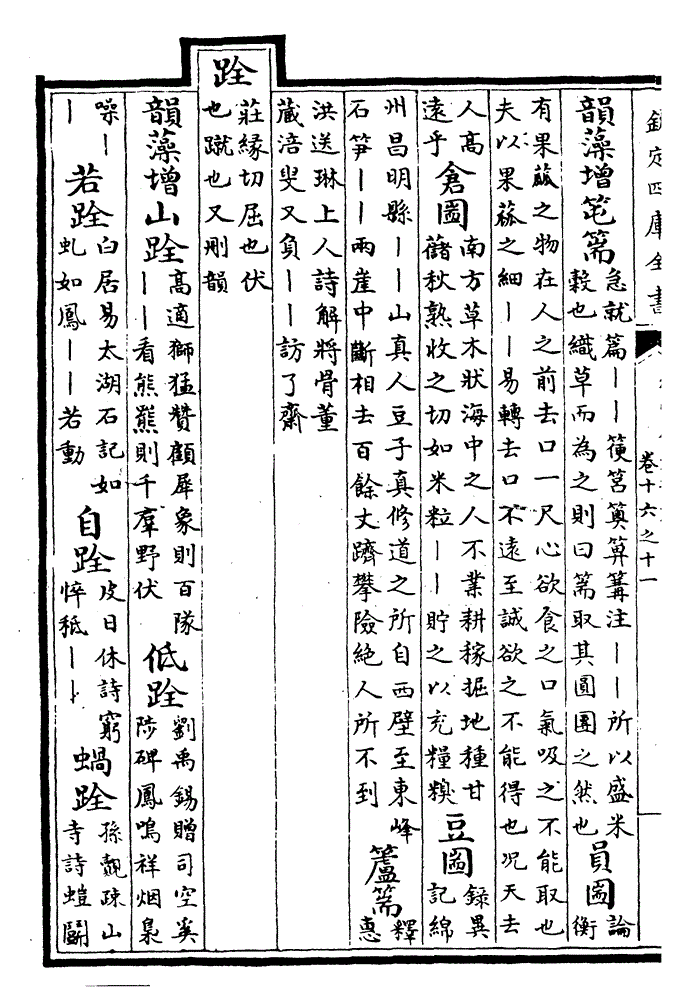 欽定四庫全書
卷十六之十一
韻藻增笔篅
急就篇丨丨箯筥䉛箅篝注丨丨所以盛米
穀也織草而為之則曰篅取其圓團之然也
員圌
論
衡
有果蓏之物在人之前去口一尺心欲食之口氣吸之不能取也
夫以果蓏之細丨丨易轉去口不遠至誠欲之不能得也况天去
人高
遠乎
倉圌
南方草木狀海中之人不業耕稼掘地種甘
藷秋熟收之切如米粒丨丨貯之以充糧糗
豆圌
錄異
記綿
州昌明縣丨丨山真人豆子真修道之所自西壁至東峰
石笋丨丨兩崖中斷相去百餘丈躋攀險絕人所不到
籚篅
釋
惠
洪送琳上人詩解將骨董
藏涪叟又負丨丨訪了齋
跧
莊緣切屈也伏
也蹴也又刪韻
韻藻增山跧
高適獅猛贊顧犀象則百隊
丨丨看熊羆則千羣野伏
低跧
劉禹錫贈司空奚
陟碑鳳鳴祥烟梟
噪丨
丨
若跧
白居易太湖石記如
虬如鳳丨丨若動
自跧
皮日休詩窮
悴秪丨丨
蝸跧
孫覿疎山
寺詩螘鬭